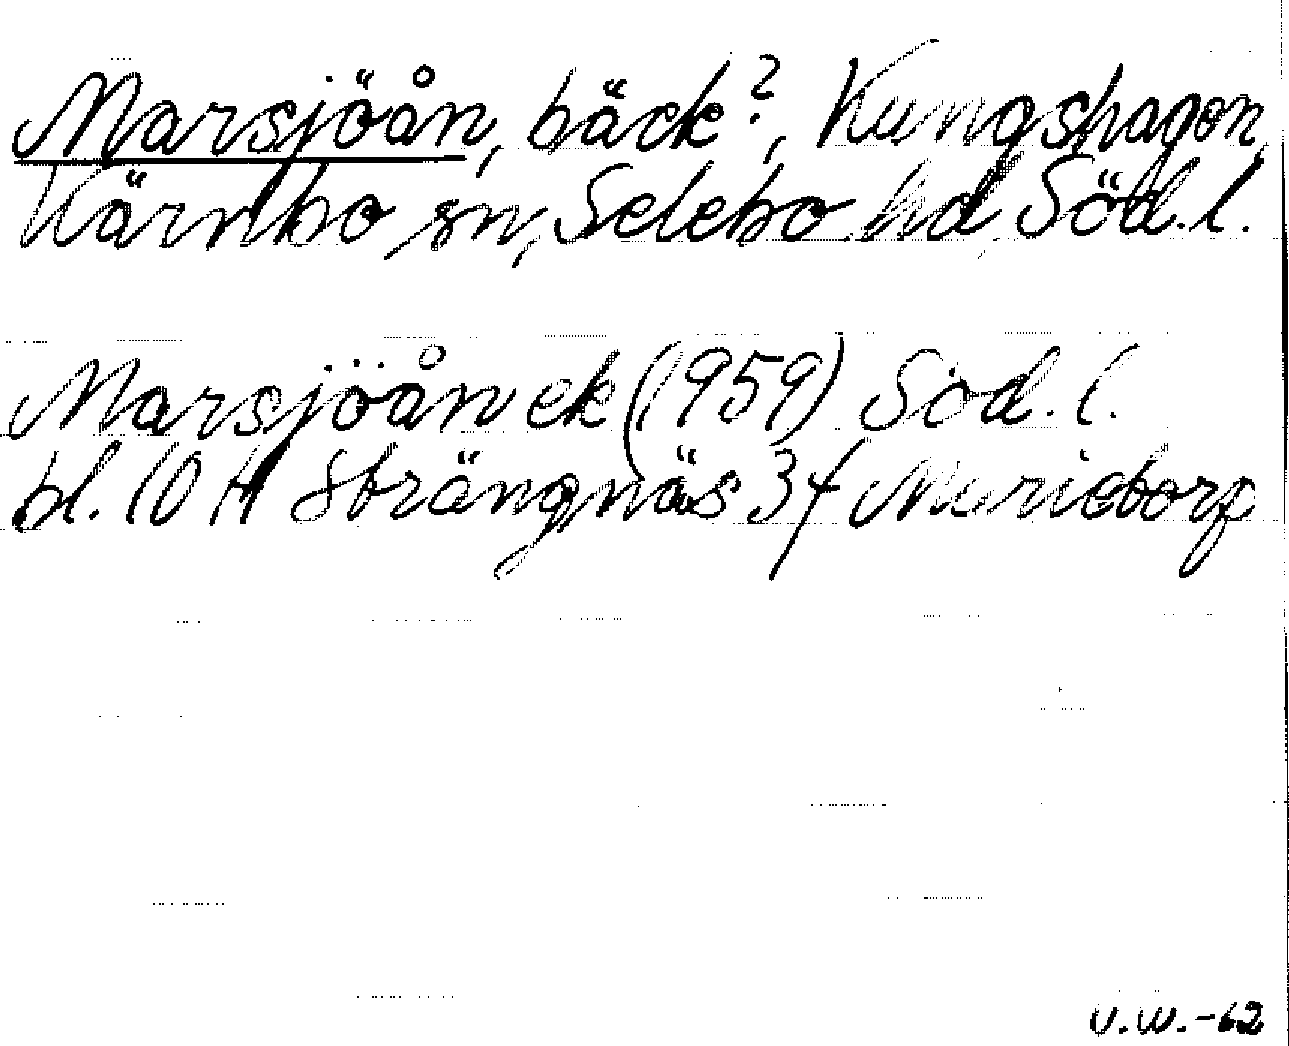 Marsjöån, bäck?, Kungshagen,
Kärnbo sn, Selebo hd Söd.l.
Marsjöån ek (1959) Söd.l.
bl. 10 H Strängnäs 3f Merietorp
U.W.-62